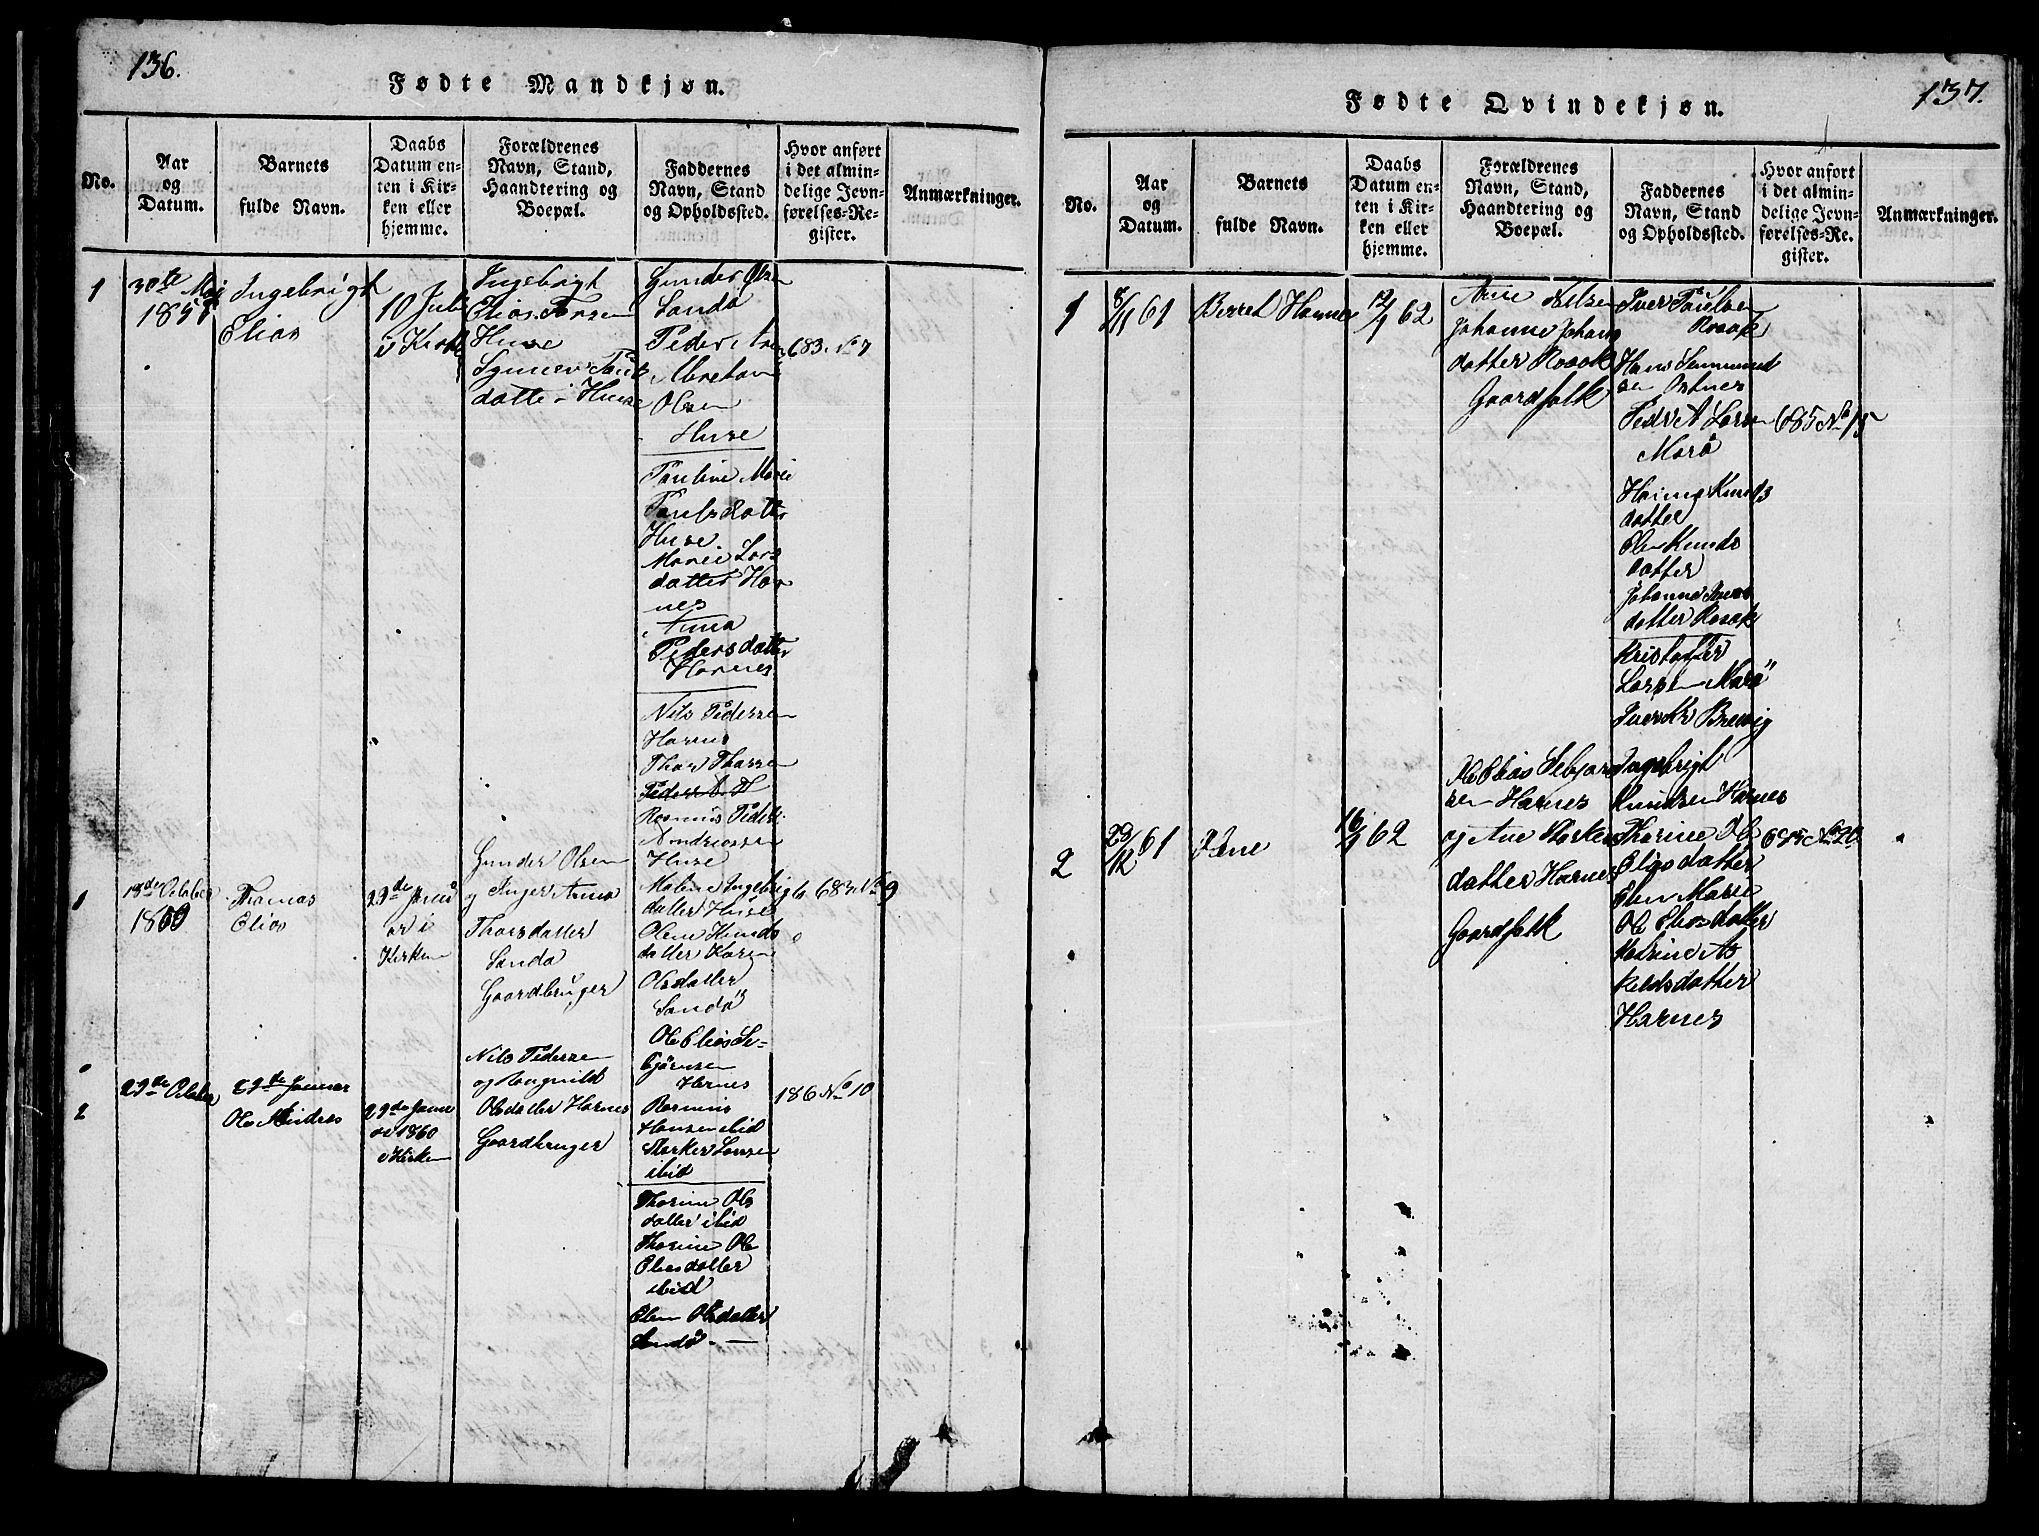 136.
Fødte Mandkjøn.
No.
Aar
og
Datum.
Barnets
fulde Navn.
Daabs
Datum en-
ten i Kir-
ken eller
hjemme.
Forældrenes
Navn, Stand,
Haandtering og
Boepæl.
Faddernes
Navn, Stand
og Opholdssted.
Hvor anført
i det almin-
delige Jevn-
førelses-Re-
gister.
Anmærkninger.
1
30te Maj
1857
Ingebrigt
Elias
10 Juli
i Kirke
Ingebrigt
Elias
Huse
datte i Huse
Gunder Olsen
Sandø
Peder
Olsen
Huse
683. No 7
Pauline Marie
Paulsdatter
Huse
Marie Lars
datter Har
nes
Anna
Pedersdatter
Harnes
Nils Pedersen
Harnes
Thor Thorsen
Rasmus Peder
Andreassen
Huse
1
18de October
1860
Thomas
Elias
29de Janu
ar i
Kirken
Gunder Olsen
og Inger Anna
Thorsdatter
Sandø
Gaardbruger
Malene Ingebrigts
datter Huse
Olene Knuds
datter Karen
Olsdatter
Sandø
683 No 9
2
29de October
29de Januar
Ole Andreas
29de Janu
ar 1860
i Kirken
Nils Pedersen
og Rangnild
Olsdatter Harnes
Gaardbruger
Ole Elias Se-
bjørnsen
Harnes
Rasmus
Hansen ibid
Sterker Larsen
ibid
186 No 10
Thorine Ols
datter ibid
Thorine Ole
Eliasdatter
ibid
Elen Olsdatter
Sandø
137.
Fødte Qvindekjøn.
No.
Aar
og
Datum.
Barnets
fulde Navn.
Daabs
Datum en-
ten i Kir-
ken eller
hjemme.
Forældrenes
Navn, Stand,
Haandtering og
Boepæl.
Faddernes
Navn, Stand
og Opholdssted.
Hvor anført
i det almin-
delige Jevn-
førelses-Re-
gister.
Anmærkninger.
1
8/11 61
Berret Hanne
12/1 62
Johanne Johans
datter Rosok
Gaardfolk
Iver Paulsen
Rosok
Hans
sen
Peder A Larsen
Marø
685 No 15
Knuds
datter
Olen Knuds
datter
Johanne Ivers
datter Rosok
Kristoffer
Larsen Marø
Iver Kr Brevig
2
23/12 61
16/1 62
Ole Elias Sebjørn
sen Harnes
og Ane Sterkers
datter Harnes
Gaardfolk
Ingebrigt
Knudsen Harnes
Thorine Ole
Eliasdatter
Elen Marie
Ole Eliasdatter
Katrine As
keldsdatter
Harnes
685 No 20